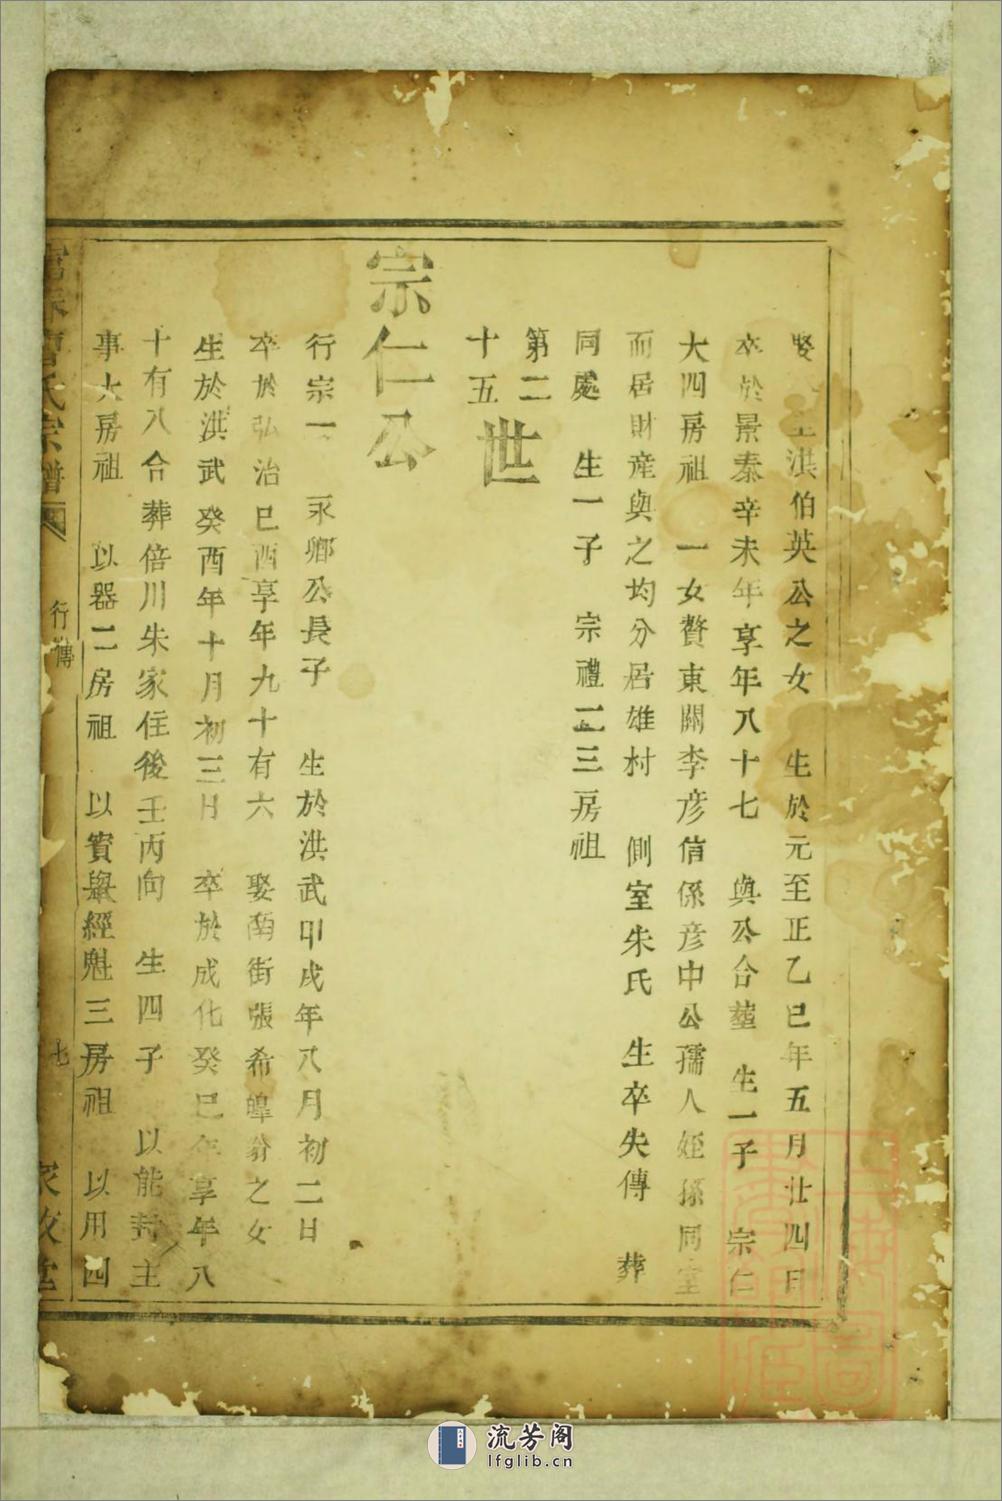 娶 洪伯英公之女 生於元至正乙巳年五月廿四日
卒於景泰辛未年享年八十七 與公合塟 生一子 宗仁
大四房祖 一女贅東關李彥俏係彥中公孺人姪孫同室
而居財產與之均分居雄村 側室朱氏 生卒失傳 葬
同處 生一子 宗禮二三房祖
第二十五世
宗仁公
行宗一 永鄉公長子 生於洪武甲戌年八月初二日
卒於弘治己酉享年九十有六 娶南街張希皥翁之女
生於洪武癸酉年十月初三日 卒於成化癸巳年享年八
十有八合葬倍川朱家住後壬丙向 生四子 以能封主
事大房祖 以器二房祖 以賓舉經魁三房祖 以用四
曹氏宗譜 行傳 七
流芳阁
lfglib.cn